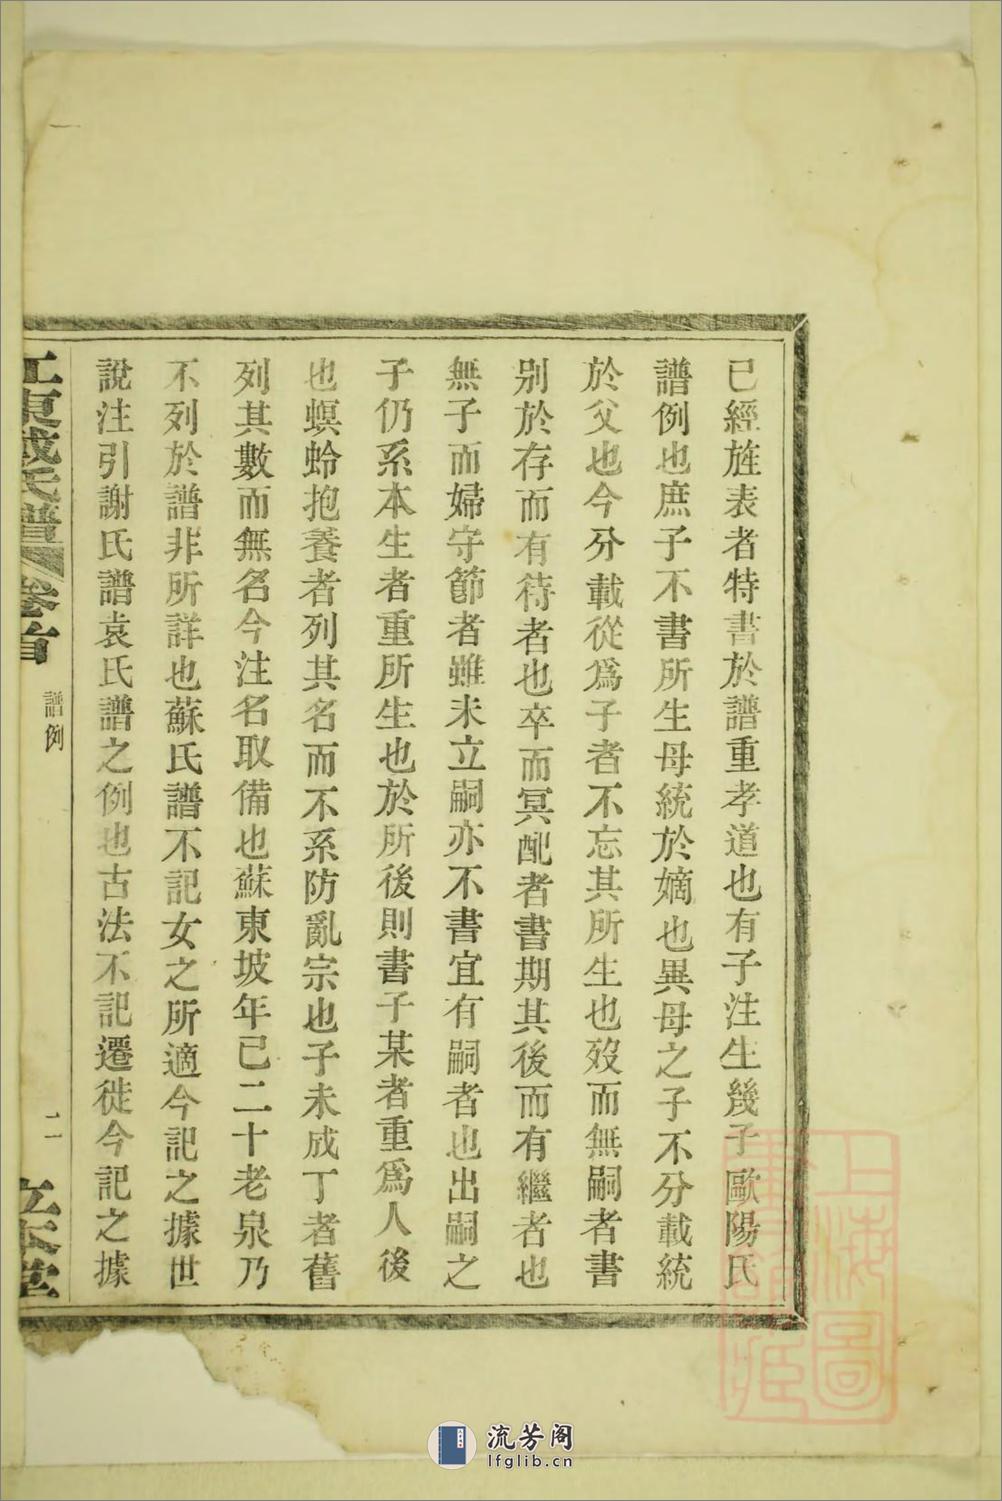 已經旌表者特書於譜重孝道也有子注生幾子歐陽氏
譜例也庶子不書所生母統於嫡也異母之子不分載統
於父也今分載從爲子者不忘其所生也歿而無嗣者書
别於存而有待者也卒而冥配者書期其後而有繼者也
無子而婦守節者雖未立嗣亦不書宜有嗣者也出嗣之
子仍系本生者重所生也於所後則書子某者重爲人後
也螟蛉抱養者列其名而不系防亂宗也子未成丁者舊
列其數而無名今注名取備也蘇東坡年已二十老泉乃
不列於譜非所詳也蘇氏譜不記女之所適今記之據世
說注引謝氏譜袁氏譜之例也古法不記遷徙今記之據
江東戚氏譜 卷首 譜例 二 立本堂
上海圖書館藏
流芳阁
lfglib.cn